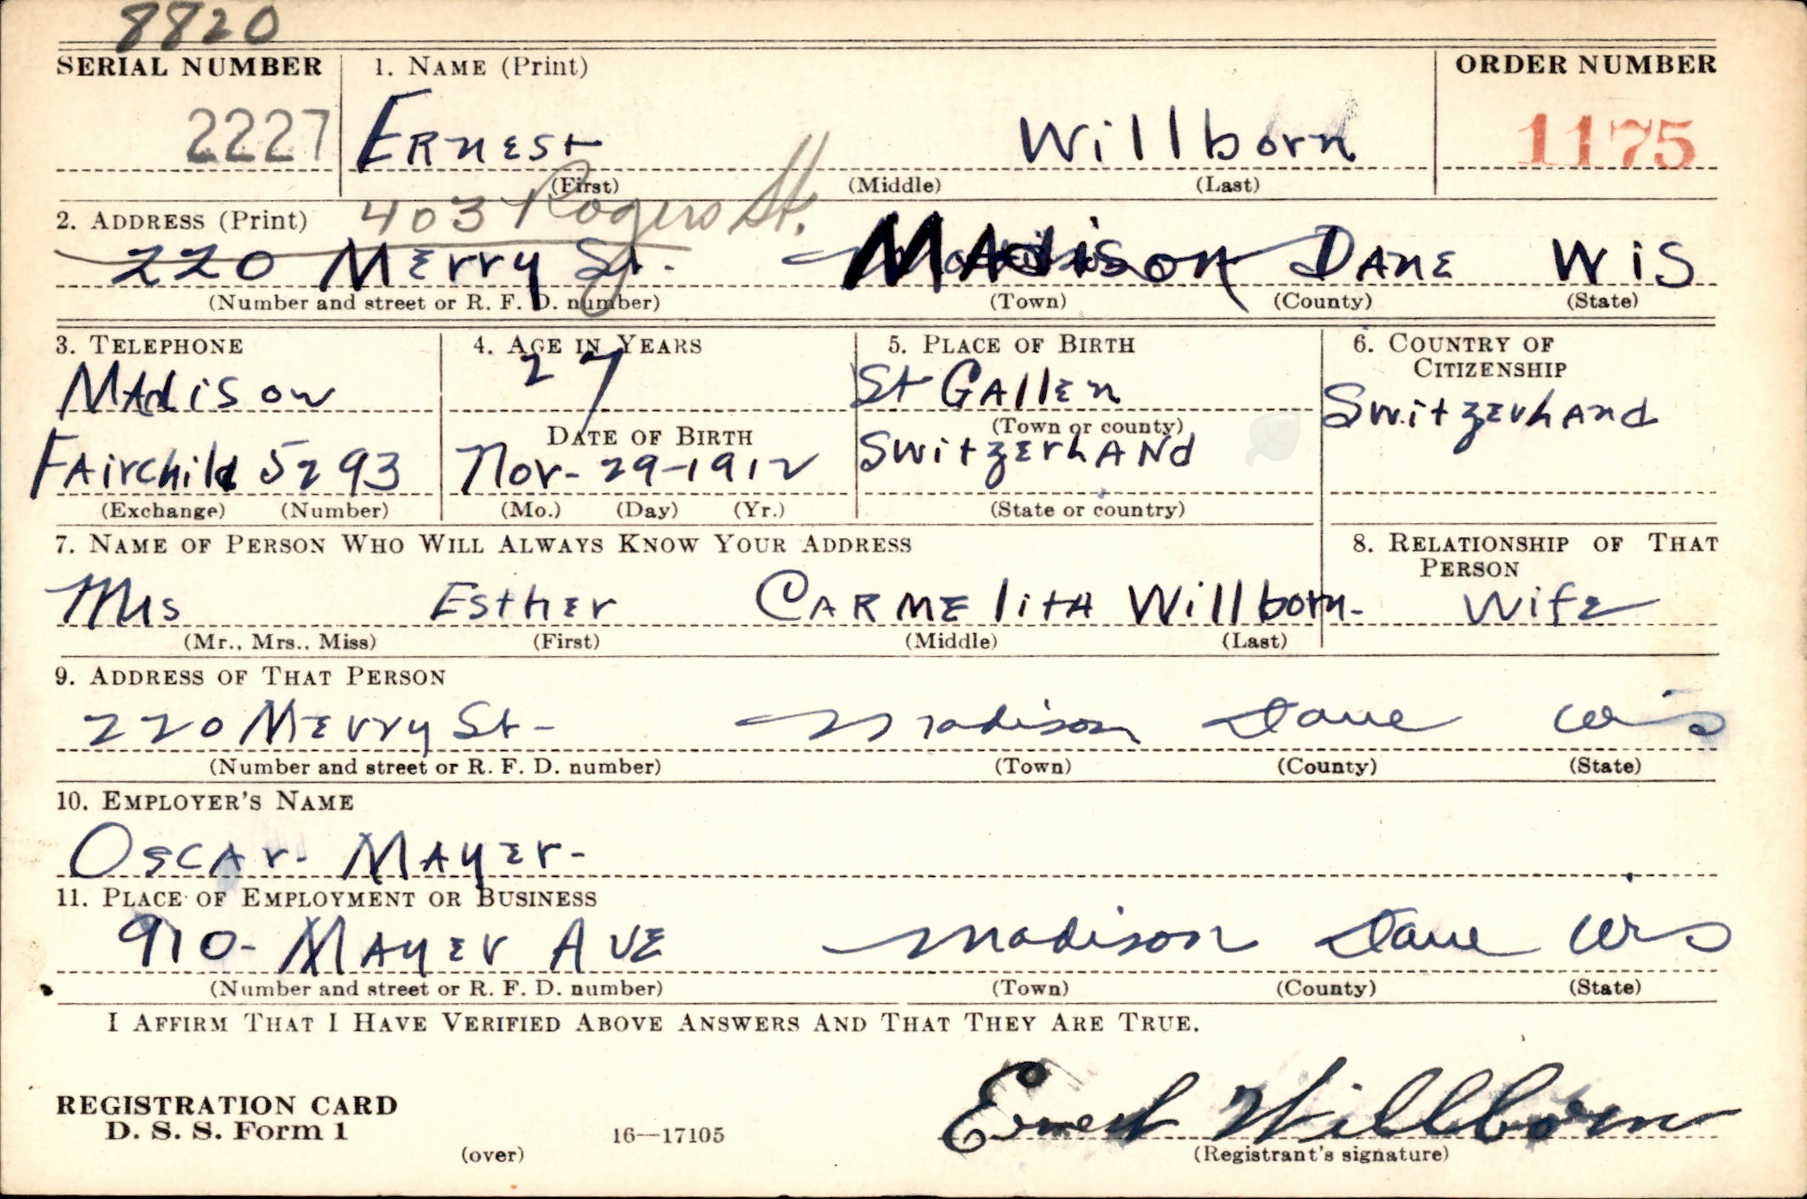 8820
SERIAL NUMBER 1. NAME (Print) ORDER NUMBER
2227 ERNEST Willborn 1175
(First) (Middle) (Last)
2. ADDRESS (Print) 403 Rogers St.
220 MErry St. MAdisON DANE WiS
(Number and street or R. F. D. number) (Town) (County) (State)
3. TELEPHONE 4. AGE IN YEARS 5. PLACE OF BIRTH 6. COUNTRY OF CITIZENSHIP
MAdison 27 St GAllEn SwitzErLAnd
(Town or county)
DATE OF BIRTH
FAirchild 5293 Nov- 29-1912 SwitzErLANd
(Exchange) (Number) (Mo.) (Day) (Yr.) (State or country)
7. NAME OF PERSON WHO WILL ALWAYS KNOW YOUR ADDRESS 8. RELATIONSHIP OF THAT PERSON
Mrs EstHEr CARMElitA Willborn- WifE
(Mr., Mrs., Miss) (First) (Middle) (Last)
9. ADDRESS OF THAT PERSON
220 MErry St- Madison Dane Wis
(Number and street or R. F. D. number) (Town) (County) (State)
10. EMPLOYER'S NAME
OscAr- MAyEr-
11. PLACE OF EMPLOYMENT OR BUSINESS
910- MAyEr AvE Madison Dane Wis
(Number and street or R. F. D. number) (Town) (County) (State)
I AFFIRM THAT I HAVE VERIFIED ABOVE ANSWERS AND THAT THEY ARE TRUE.
REGISTRATION CARD
D. S. S. Form 1 16—17105 Ernest Willborn
(over) (Registrant's signature)